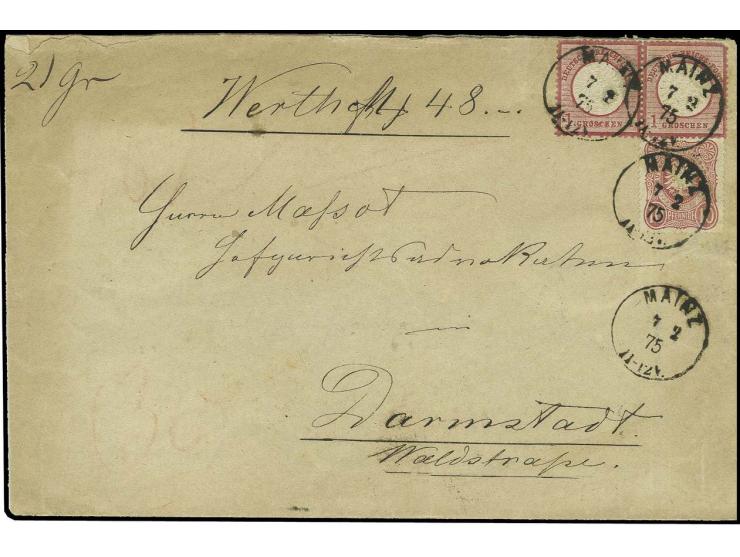 21 gr
Werth 48.--
DEUTSCHE REICHS
1 GROSCHEN
1 GROSCHEN
PFENNIGE
MAINZ
7 2
75
11-12V.
MAINZ
7 2
75
MAINZ
7 2
75
MAINZ
7 2
75
11-12V.
Herrn Maſsot
Hofgerichtsadvokaten
Darmstadt.
Waldstraſse.